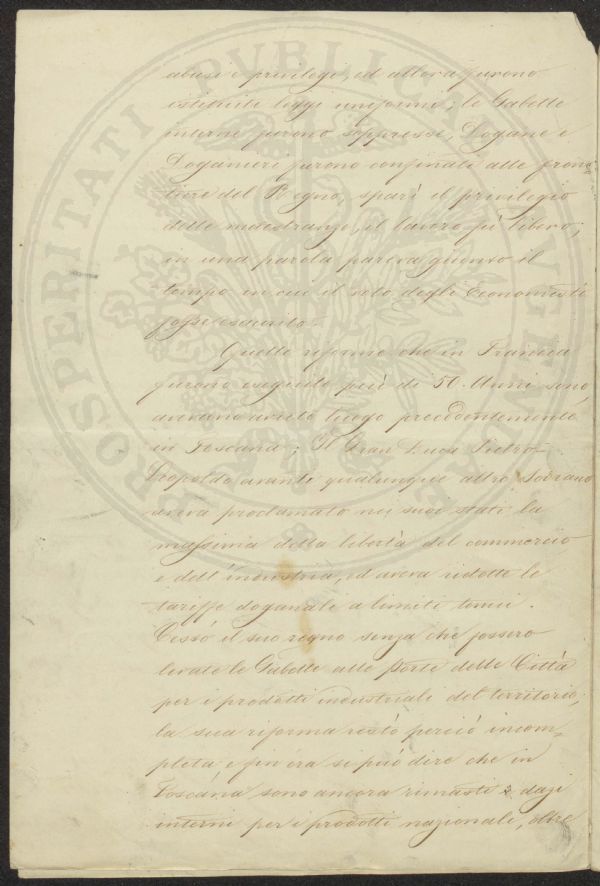 abusi e privilegi, ed allora furono
istituite leggi uniformi; le Gabelle
interne furono soppresse, Dogane e
Doganieri furono confinati alle fron
tiere del Regno, sparì il privilegio
delle maestranze, il lavoro fù libero;
in una parola pareva giunto il
tempo in cui il voto degli Economisti
fosse esaurito.
Quelle riforme che in Francia
furono eseguite più di 50. Anni sono
avevano avuto luogo precedentemente
in Toscana; Il Gran Duca Pietro
Leopoldo avanti qualunque altro Sovrano
aveva proclamato nei suoi stati la
massima della libertà del commercio
e dell'industria, ed aveva ridotte le
tariffe doganale a limiti tenui.
Cessò il suo regno senza che fossero
levate le Gabelle alle porte delle Città
per i prodotti industriali del territorio;
la sua riforma restò perciò incom=
pleta e fin'ora si può dire che in
Toscana sono ancora rimasti i dazi
interni per i prodotti nazionali, oltre
PROSPERITATI PVBLICAE AVGENDAE